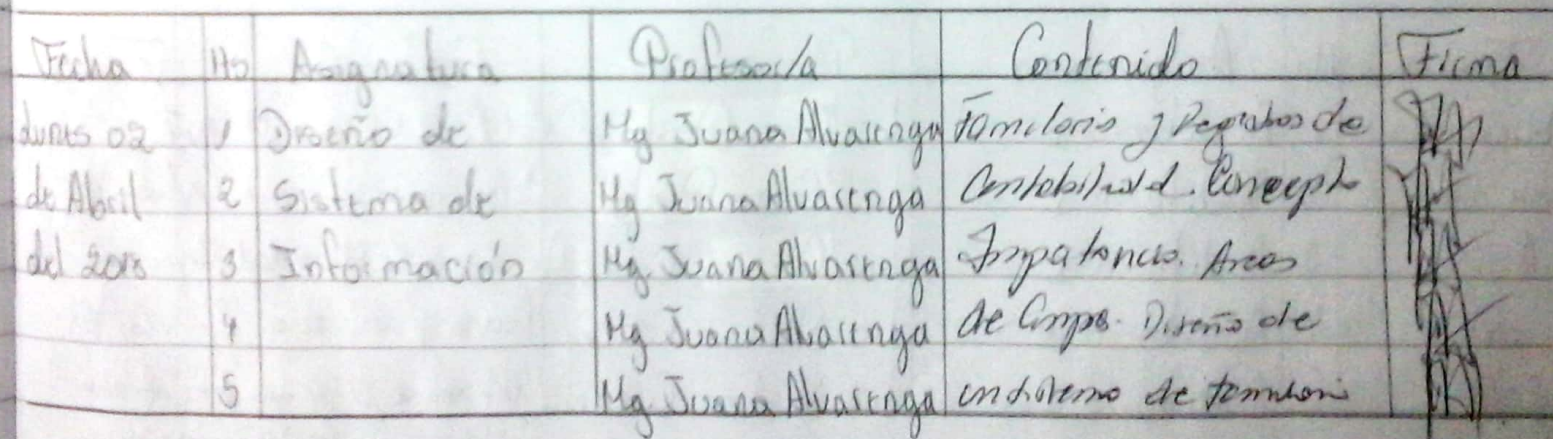 Fecha Hs Asignatura Profesor/a Contenido Firma
Lunes 02 1 Diseño de Mg Juana Alvarenga Formulario y Registros de
de Abril 2 Sistema de Mg Juana Alvarenga Contabilidad. Concepto
del 2018 3 Información Mg Juana Alvarenga Importancia. Areas
4 Mg Juana Alvarenga de Diseño de
5 Mg Juana Alvarenga de